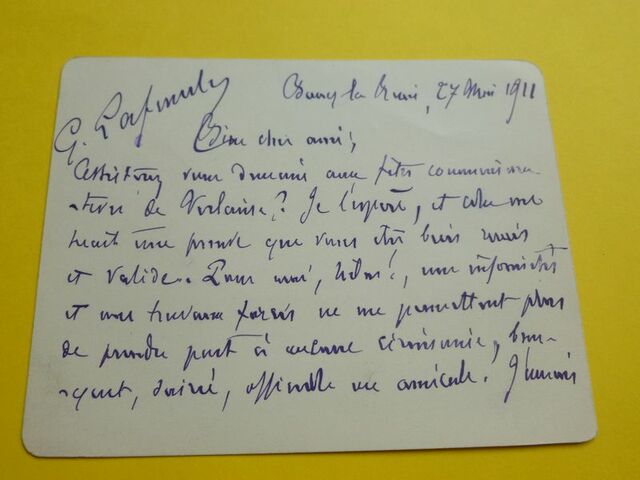 G. Lafenestre
Bourg la Reine, 27 Mai 1911
Bien cher ami,
Assisterez vous demain aux fêtes commémora-
-tives de Verlaine? Je l'espère, et cela me
serait une preuve que vous êtes bien remis
et valide. Pour moi, hélas!, mes infirmités
et mes travaux forcés ne me permettent plus
de prendre part à aucune cérémonie, ban-
-quet, soirée, officielle ou amicale. J'